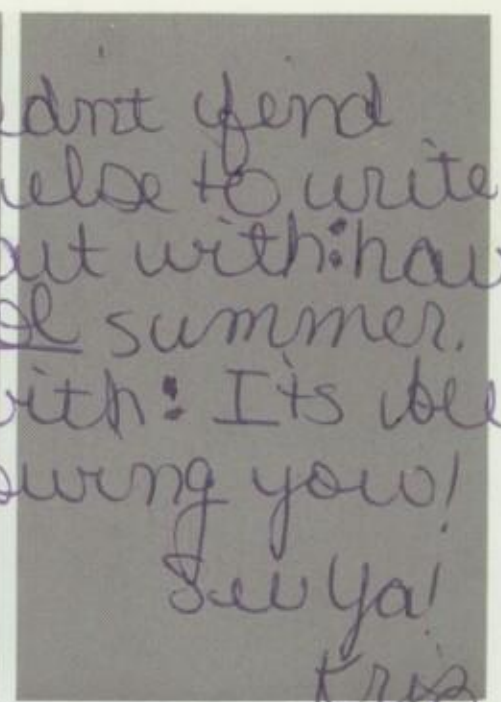 dnt find
else to write
ut with: hav
ol summer.
with: Its bee
owing you!
See Ya!
Kris